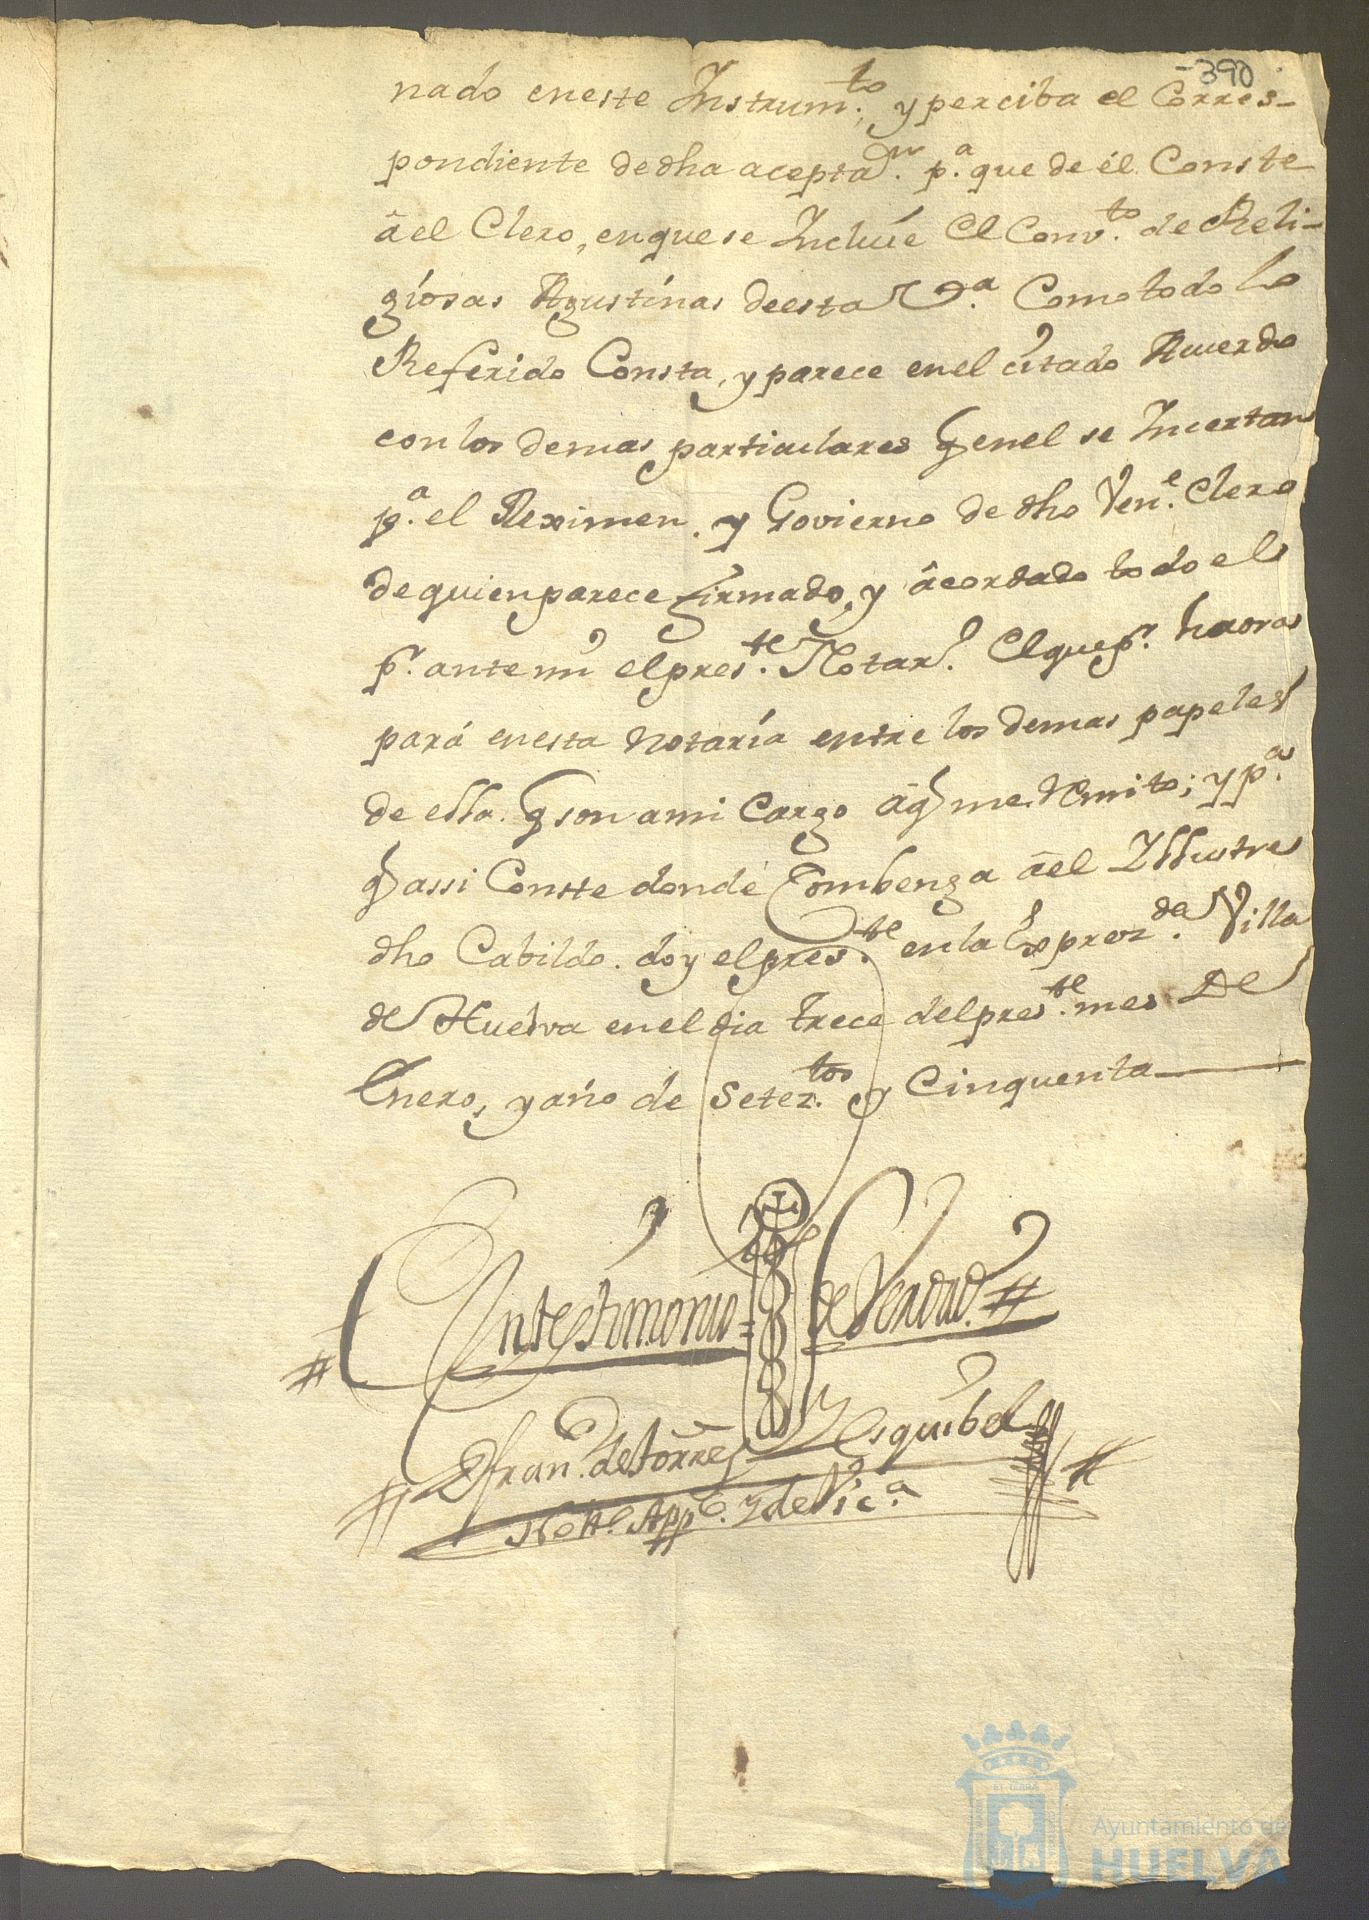 -390
nado eneste Instrum.to, y perciba el Corres-
pondiente de dha acepta.n p.a que de él Conste
â el Clero, enquese Incluíe El Conv.to de Reli-
giosas Agustínas deesta V.a Como todo lo
Referido Consta, y parece enel citado Acuerdo
con los demas particulares q enel se Incertan
p.a el Reximen. y Govierno de dho Ven.e Clero
de quien parece firmado, y âcordado todo ello
p.r ante mi el pres.te Notar.o El que p.r haora
pará enesta Notaría entre los demas papeles
de ella. q son a mi Cargo â q me Remito; y p.a
q assi Conste donde Combenga âel Illustre
dho Cabildo. doy el pres.te en la Exprez.da Villa
de Huelva enel dia trece del pres.te mes De
Enero, y año de Setez.tos y Cinquenta
En testimonio = de Verdad.
D fran.o de Torres Y Esquibel
Nott.o App.o Y de Vic.a
ET TERRÆ
Ayuntamiento de
HUELVA